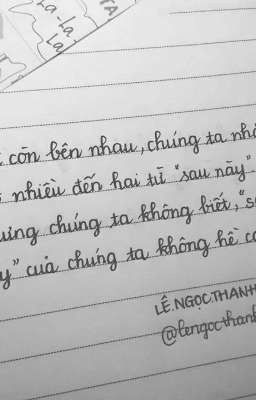 La-La
La
TA
còn bên nhau, chúng ta nhắ
nhiều đến hai từ "sau này"
chúng ta không biết, "s
y" của chúng ta không hề c
LÊ.NGỌC.THANH
@lengocthanh